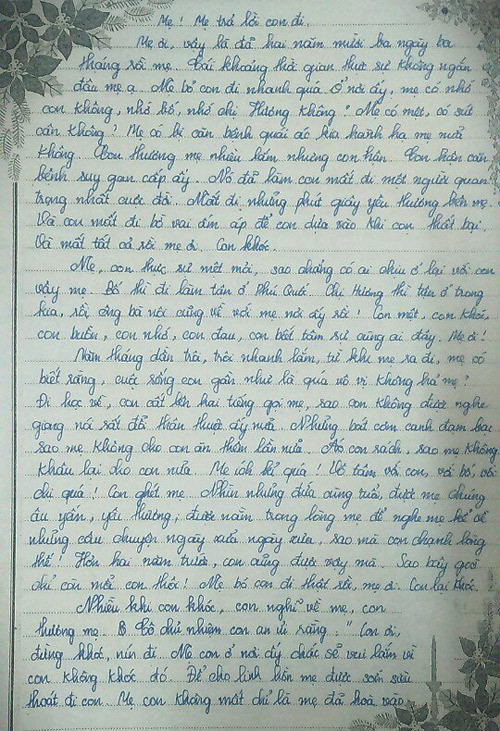 Mẹ! Mẹ trả lời con đi.
Mẹ ơi, vậy là đã hai năm mười ba ngày ba
tháng rồi mẹ. Cái khoảng thời gian thực sự không ngắn
đâu mẹ ạ. Mẹ bỏ con đi nhanh quá. Ở nơi ấy, mẹ có nhớ
con không, nhớ bố, nhớ chị Hương không? Mẹ có mệt, có sút
cân không? Mẹ có bị căn bệnh quái ác kia hành hạ mẹ nữa
không. Con thương mẹ nhiều lắm nhưng con hận. Con hận căn
bệnh suy gan cấp ấy. Nó đã làm con mất đi một người quan
trọng nhất cuộc đời. Mất đi những phút giây yêu thương bên mẹ.
Và con mất đi bờ vai ấm áp để con dựa vào khi con thất bại.
Và mất tất cả rồi mẹ ơi. Con khóc.
Mẹ, con thực sự mệt mỏi, sao chẳng có ai chịu ở lại với con
vậy mẹ. Bố thì đi làm tận ở Phú Quốc. Chị Hương thì tận ở trong
kia, rồi ông bà nội cũng về với mẹ nơi ấy rồi! Con mệt, con khóc,
con buồn, con nhớ, con đau, con biết tâm sự cùng ai đây. Mẹ ơi!
Năm tháng dần trôi, trôi nhanh lắm, từ khi mẹ ra đi, mẹ có
biết rằng, cuộc sống con gần như là quá vô vị không hả mẹ?
Đi học về, con cất lên hai tiếng gọi mẹ, sao con không được nghe
giọng nói rất đỗi thân thuộc ấy nữa. Những bát cơm canh đạm bạc
sao mẹ không cho con ăn thêm lần nữa. Áo con rách, sao mẹ không
khâu lại cho con nữa. Mẹ ích kỉ quá! Vô tâm với con, với bố, với
chị quá! Con ghét mẹ. Nhìn những đứa cùng tuổi, được mẹ chúng
âu yếm, yêu thương, được nằm trong lòng mẹ để nghe mẹ kể về
những câu chuyện ngày xửa ngày xưa, sao mà con chạnh lòng
thế! Hơn hai năm trước, con cũng được vậy mà. Sao bây giờ
chỉ còn mỗi con thôi! Mẹ bỏ con đi thật rồi, mẹ ơi. Con lại khóc.
Nhiều khi con khóc, con nghĩ về mẹ, con
thương mẹ. Cô chủ nhiệm con an ủi rằng: " Con ơi,
đừng khóc, nín đi. Mẹ con ở nơi ấy chắc sẽ vui lắm vì
con không khóc đó. Để cho linh hồn mẹ được sớm siêu
thoát đi con. Mẹ con không mất chỉ là mẹ đã hoà vào